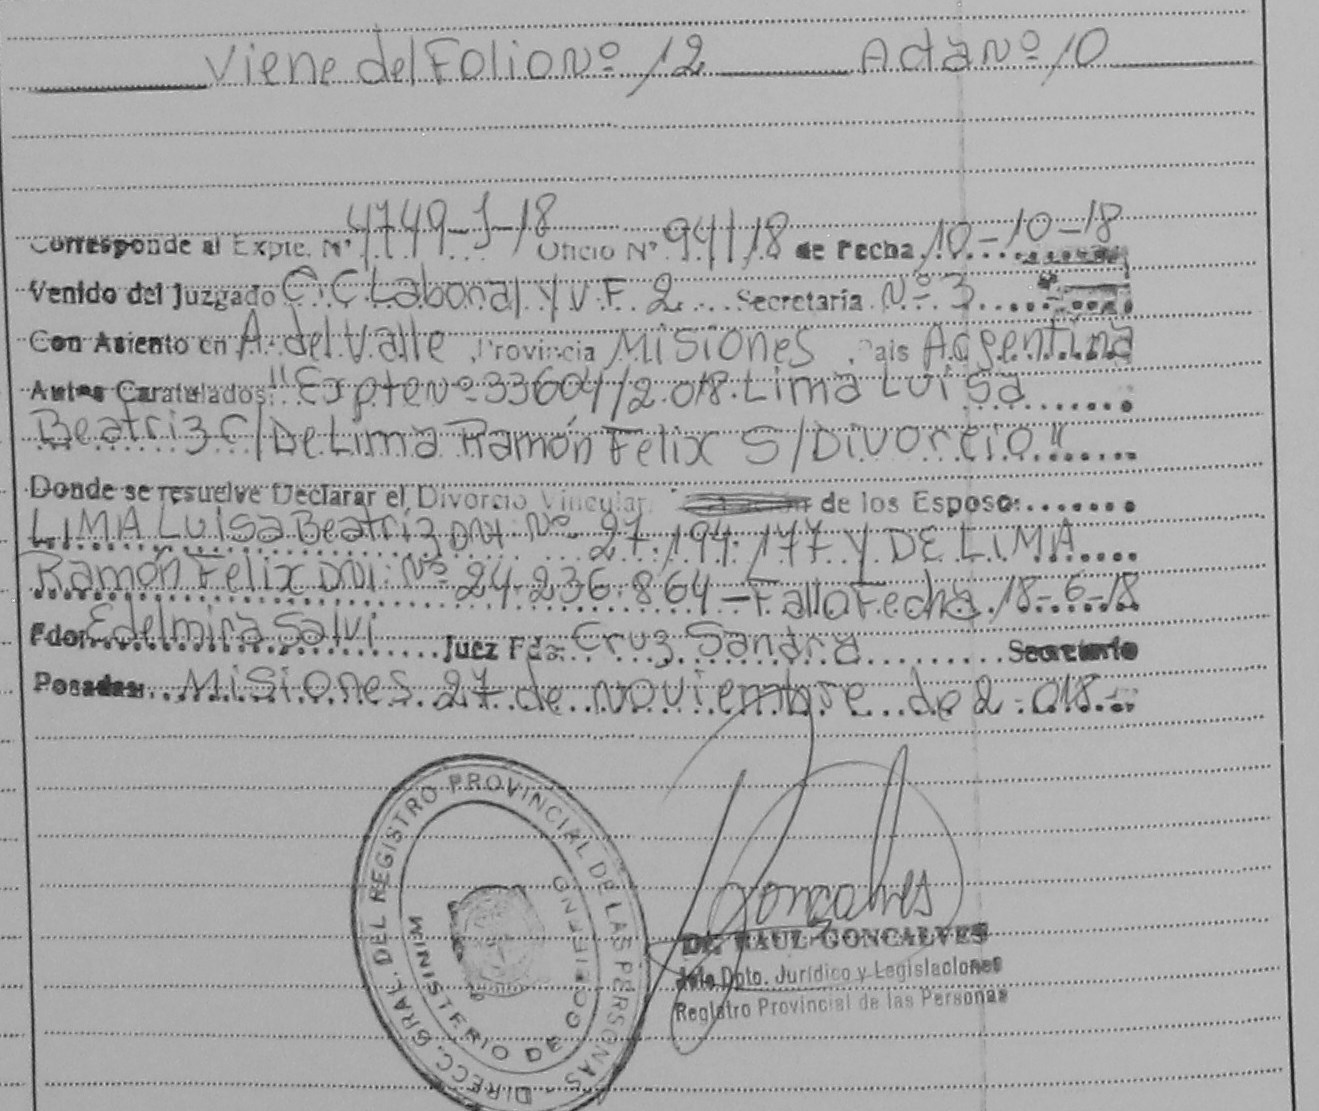 Viene del Folio Nº 12 Acta Nº 10
Corresponde al Expte. Nº 4749-J-18 Oficio Nº 94/18 de Fecha 10-10-18
Venido del Juzgado C.C Laboral y V.F. 2 Secretaría Nº 3
Con Asiento en A. del Valle Provincia Misiones País Argentina
Autos Caratulados: "Expte Nº 33604/2.018. Lima Luisa
Beatriz C/ De Lima Ramón Felix S/ Divorcio"
Donde se resuelve Declarar el Divorcio Vincular de los Esposo:
LIMA Luisa Beatriz DNI Nº 27.194.177 Y DE LIMA
Ramón Felix DNI: Nº 24.236.864 - Fallo Fecha 18-6-18
Fdo: Edelmira Salvi Juez Fdo: Cruz Sandra Secretario
Posadas: Misiones 27 de noviembre de 2.018.-
DIRECC. GRAL. DEL REGISTRO PROVINCIAL DE LAS PERSONAS -
MINISTERIO DE GOBIERNO
Goncalves
Dr. RAUL GONCALVES
Jefe Dpto. Jurídico y Legislaciones
Registro Provincial de las Personas